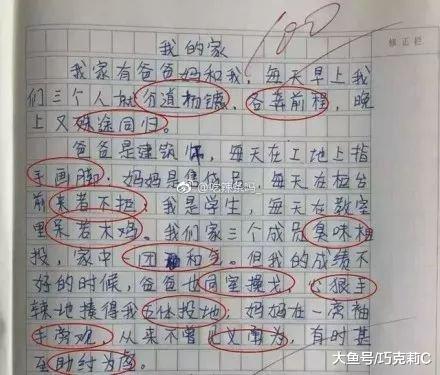 我的家
100
修正栏
我家有爸爸妈和我,每天早上我
们三个人就分道杨镳,各奔前程,晚
上又殊途同归。
爸爸是建筑师,每天在工地上指
手画脚,妈妈是售货员,每天在柜台
前来者不拒,我是学生,每天在教室
里呆若木鸡。我们家三个成员臭味相
投,家中一团和气。但我的成绩不
好的时候,爸爸也同室操戈,心狠手
辣地揍得我五体投地,妈妈在一旁袖
手旁观,从来不曾见义勇为,有时甚
至助纣为虐。
大鱼号/巧克莉C